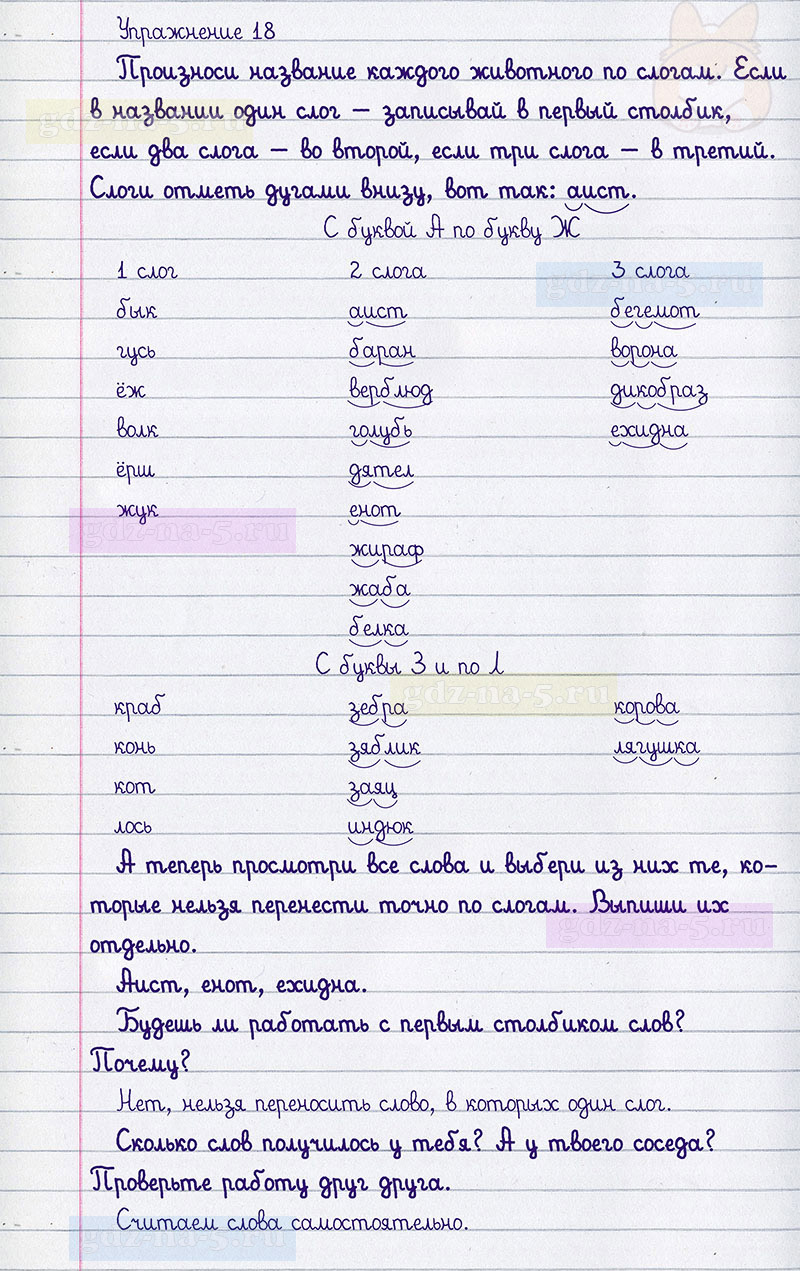 Упражнение 18
Произноси название каждого животного по слогам. Если
в названии один слог — записывай в первый столбик,
если два слога — во второй, если три слога — в третий.
Слоги отметь дугами внизу, вот так: аист.
С буквой А по букву Ж
1 слог 2 слога 3 слога
бык аист бегемот
гусь баран ворона
ёж верблюд дикобраз
волк голубь ехидна
ёрш дятел
жук енот
жираф
жаба
белка
С буквы З и по Л
краб зебра корова
конь зяблик лягушка
кот заяц
лось индюк
А теперь просмотри все слова и выбери из них те, ко-
торые нельзя перенести точно по слогам. Выпиши их
отдельно.
Аист, енот, ехидна.
Будешь ли работать с первым столбиком слов?
Почему?
Нет, нельзя переносить слово, в которых один слог.
Сколько слов получилось у тебя? А у твоего соседа?
Проверьте работу друг друга.
Считаем слова самостоятельно.
gdz-na-5.ru
gdz-na-5.ru
gdz-na-5.ru
gdz-na-5.ru
gdz-na-5.ru
gdz-na-5.ru